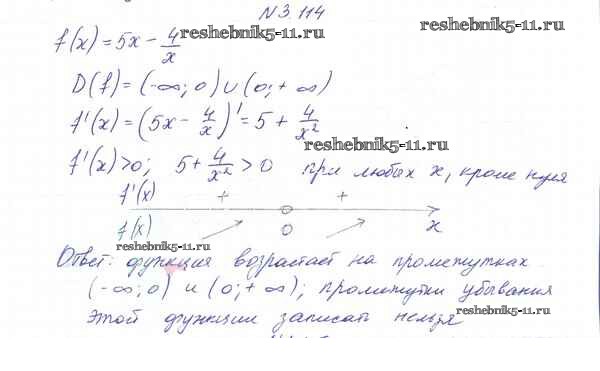 N 3.114
f(x) = 5x - 4/x
reshebnik5-11.ru
reshebnik5-11.ru
D(f) = (-∞; 0) ∪ (0; + ∞)
f'(x) = (5x - 4/x)' = 5 + 4/x²
reshebnik5-11.ru
f'(x) > 0; 5 + 4/x² > 0 при любых x, кроме нуля
f'(x) + +
f(x) 0 x
reshebnik5-11.ru
Ответ: функция возрастает на промежутках
(-∞; 0) и (0; + ∞); промежутки убывания
reshebnik5-11.ru
этой функции записать нельзя